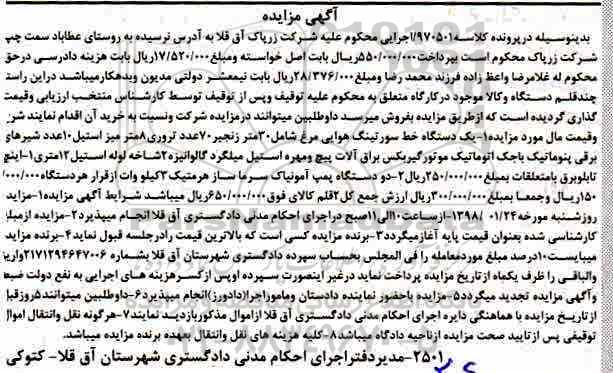 آگهی مزایده
بدینوسیله درپرونده کلاسه ۹۷۰۵۰۱/اجرایی محکوم علیه شرکت زرپاک آق قلا به آدرس نرسیده به روستای عطاباد سمت چپ
شرکت زرپاک محکوم است بپرداخت ۵۵۰/۰۰۰/۰۰۰ریال بابت اصل خواسته ومبلغ ۱۷/۵۲۰/۰۰۰ریال بابت هزینه دادرسی درحق
محکوم له غلامرضا واعظ زاده فرزند محمد رضا ومبلغ ۲۸/۳۷۶/۰۰۰ریال بابت نیمعشر دولتی مدیون وبدهکارمیباشد دراین راستا
چندقلم دستگاه وکالا موجود درکارگاه متعلق به محکوم علیه توقیف وپس از توقیف توسط کارشناس منتخب ارزیابی وقیمت
گذاری گردیده است که ازطریق مزایده بفروش میرسد داوطلبین میتوانند درمزایده شرکت ونسبت به خرید آن اقدام نمایند شرح
وقیمت مال مورد مزایده ۱-یک دستگاه خط سورتینگ هوایی مرغ شامل ۳۰متر زنجیر ۷۰عدد تروری ۸متر میز استیل ۱۰عدد شیرهای
برقی پنوماتیک باجک اتوماتیک موتورگیربکس براق آلات پیچ ومهره استیل میلگرد گالوانیزه ۲شاخه لوله استیل ۱۲متری ۱-اینچ
تابلوبرق بامتعلقات بمبلغ ۲۵۰/۰۰۰/۰۰۰ریال ۲-دو دستگاه پمپ آمونیاک سرما ساز هرمتیک ۳کیلو وات ازقرار هردستگاه ۰۰۰/۰۰۰/
۱۵۰ریال وجمعا بمبلغ ۳۰۰/۰۰۰/۰۰۰ریال ارزش جمع کل ۲قلم کالای فوق ۶۵۰/۰۰۰/۰۰۰ریال میباشد شرایط آگهی مزایده ۱-مزایده
روزشنبه مورخه ۱۳۹۸/۰۱/۲۴ ازساعت ۱۰الی ۱۱صبح دراجرای احکام مدنی دادگستری آق قلا انجام میپذیرد ۲-مزایده ازمبلغ
کارشناسی شده بعنوان قیمت پایه آغازمیگردد ۳-برنده مزایده کسی است که بالاترین قیمت رادرجلسه قبول نماید ۴-برنده مزایده
میبایست ۱۰درصد مبلغ موردمعامله را فی المجلس بحساب سپرده دادگستری شهرستان آق قلا بشماره ۲۱۷۱۲۹۴۶۴۷۰۰۶ واریز
والباقی را ظرف یکماه ازتاریخ مزایده پرداخت نماید درغیر اینصورت سپرده اوپس ازکسرهزینه های اجرایی به نفع دولت ضبط
وآگهی مزایده تجدید میگردد ۵-مزایده باحضور نماینده دادستان ومامور اجرا(دادورز)انجام میپذیرد ۶-داوطلبین میتوانند ۵روزقبل
ازتاریخ مزایده با هماهنگی دایره اجرای احکام مدنی دادگستری آق قلا ازاموال مذکوربازدید نمایند ۷-هرگونه نقل وانتقال اموال
توقیفی پس از تایید صحت مزایده ازناحیه دادگاه میباشد ۸-کلیه هزینه های نقل وانتقال بعهده برنده مزایده میباشد.
۲۵۰۱-مدیردفتراجرای احکام مدنی دادگستری شهرستان آق قلا- کتوکی